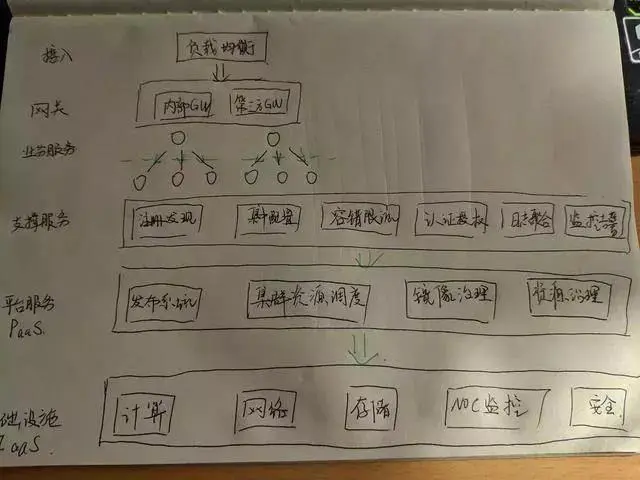 接入 负载均衡
网关 内部GW 第三方GW
业务服务
支撑服务 注册发现 集中配置 容错限流 认证授权 日志聚合 监控告警
平台服务 发布系统 集群资源调度 镜像治理 资源治理
PaaS
础设施 计算 网络 存储 NOC监控 安全
IaaS